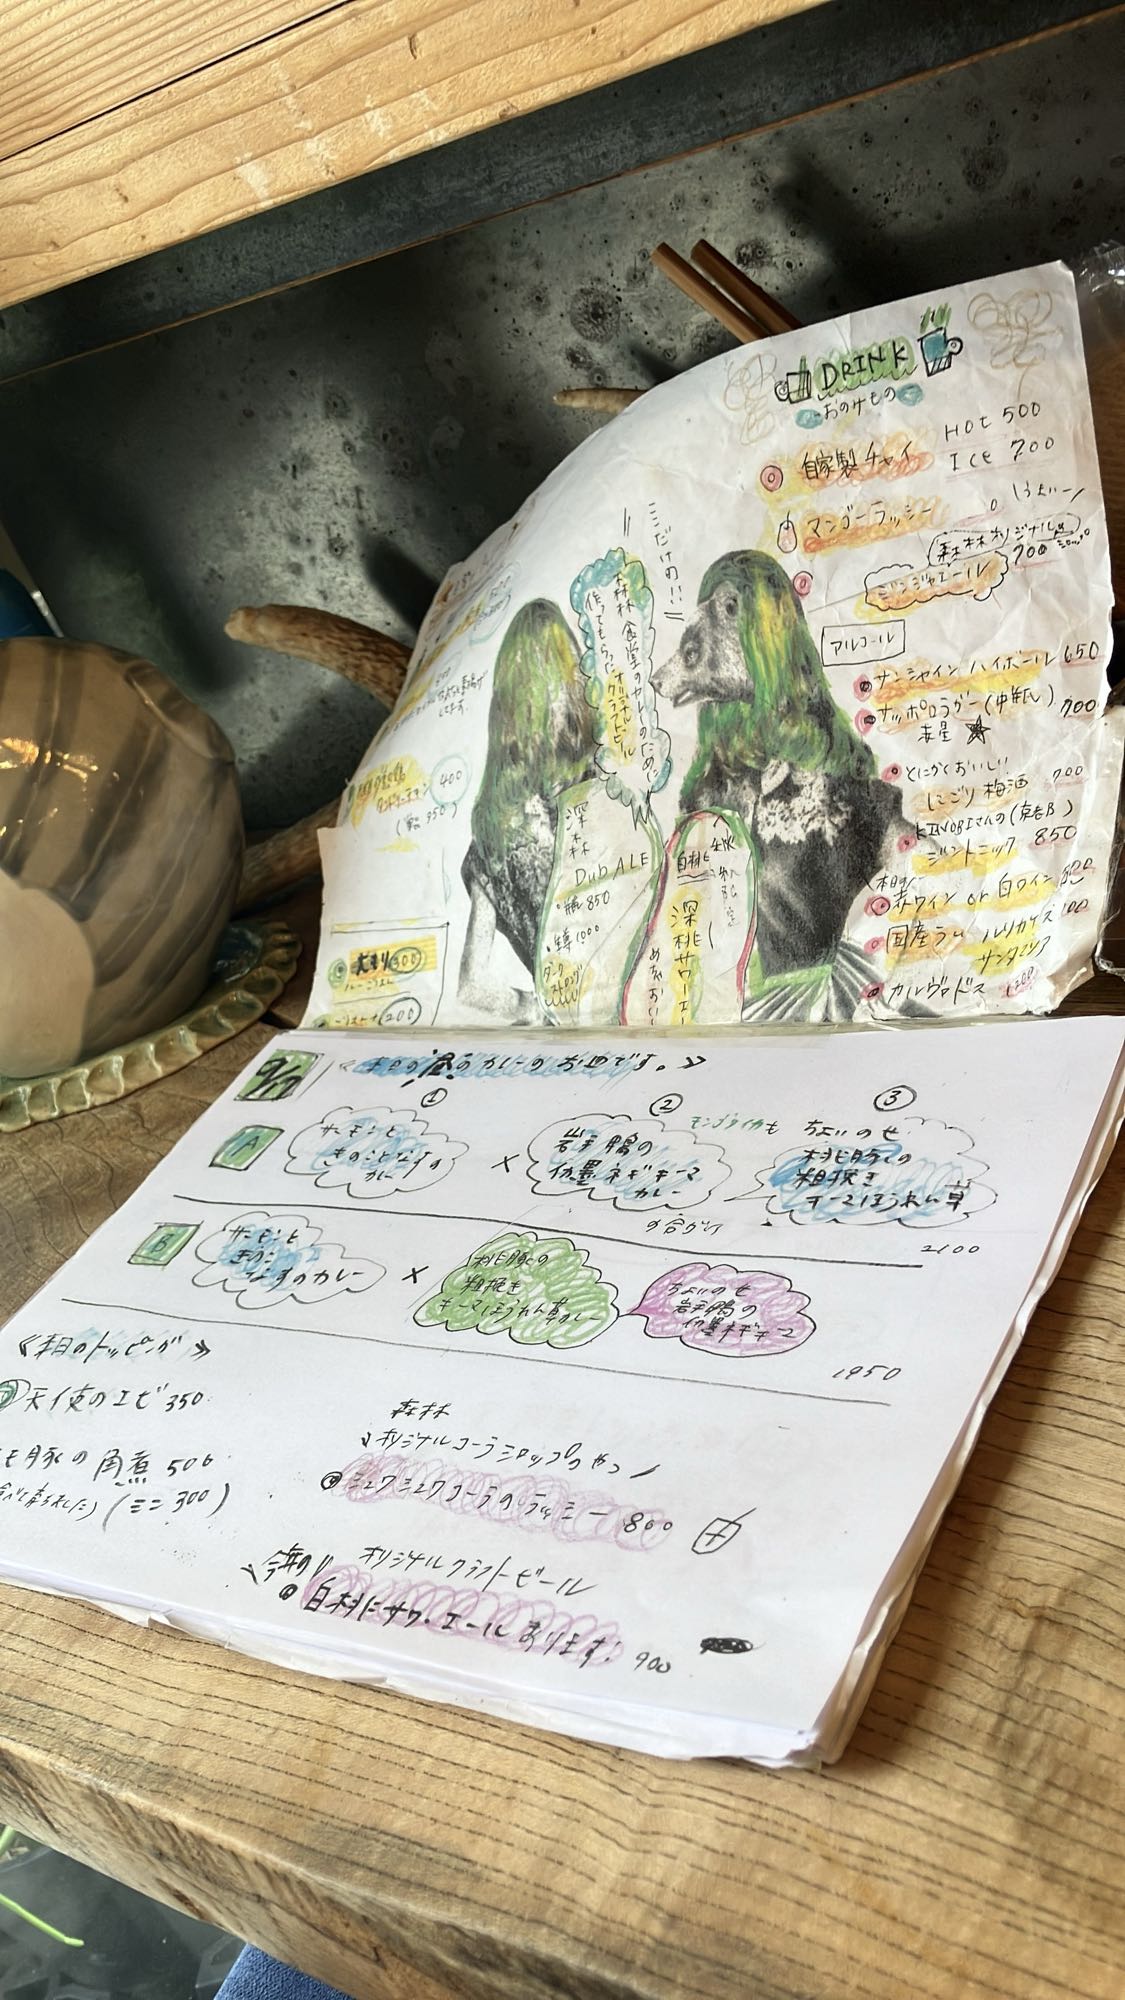 DRINK
おのみもの
自家製チャイ
HOt 500
ICE 700
マンゴーラッシー
森林オリジナルの
700
ジンジャエール
アルコール
サンシャイン ハイボール 650
サッポロラガー(中瓶) 700
赤星
とにかくおいしい
にごり梅酒 700
KINOBIさんの(京都)
ジントニック 850
赤ワイン or 白ワイン
国産ラム ルリカケス
サンタマリア
カルヴァドス 1200
ここだけの!!
森林食堂のカレーのために
作ってもらったオリジナルクラフトビール
深森
Dub ALE
・瓶 850
・樽 1000
ダーク
ストロング
深桃サワーエー
400
大もり 300
(200)
9/17
《本日の昼のカレーのお皿です。》
① ② ③
A
サーモンと
きのことなすの
カレー
×
モンゴウイカも
岩手鴨の
伽墨ネギキーマ
カレー
ちょいのせ
桃豚の
粗挽き
キーマほうれん草
の合がけ
2100
B
サーモンと
きのこ
なすのカレー
×
桃豚の
粗挽き
キーマほうれん草カレー
ちょいのせ
岩手鴨の
伽墨ネギキーマ
1950
《本日のトッピング》
天使のエビ 350
豚の角煮 500
(ミニ 300)
森林
オリジナルコーラシロップのやつ
シュワシュワコーラのラッシー 800
今年の!! オリジナルクラフトビール
白桃にサワーエールあります! 900